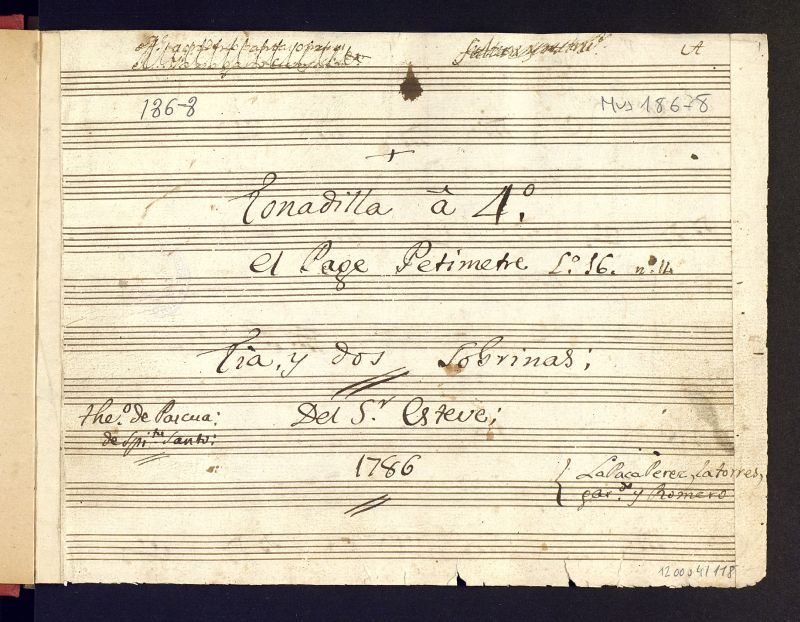 186-8
Mus 186-8
Tonadilla â 4.º
el Page Petimetre L.º 16. n.º 14
tia, y dos Sobrinas;
the.º de Pascua;
de Spi.tu Santo;
Del S.r Esteve;
1786
La Paca Perez, la torres,
gar.do y Romero
1200041118